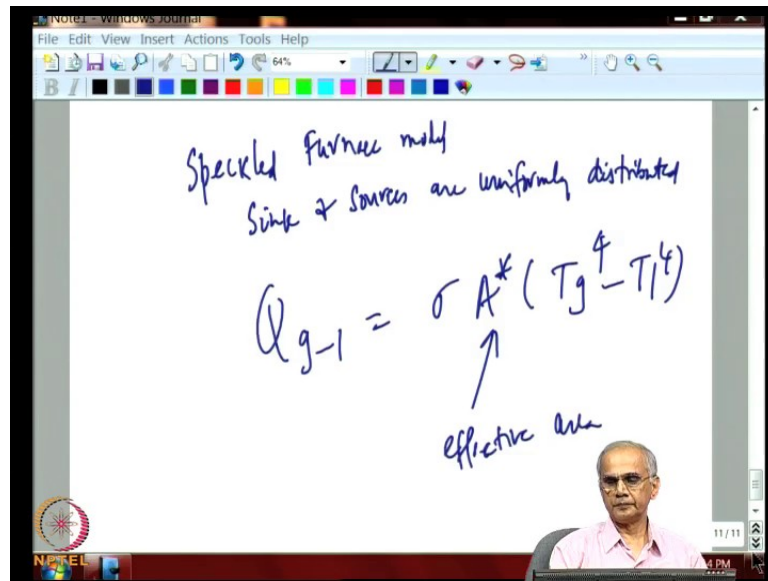 Note1 - Windows Journal
File Edit View Insert Actions Tools Help
64%
B I
Speckled Furnace model
Sink & Sources are uniformly distributed
Q g-1 = σ A* ( Tg⁴ - T1⁴ )
effective area
11 / 11
NPTEL
4 PM